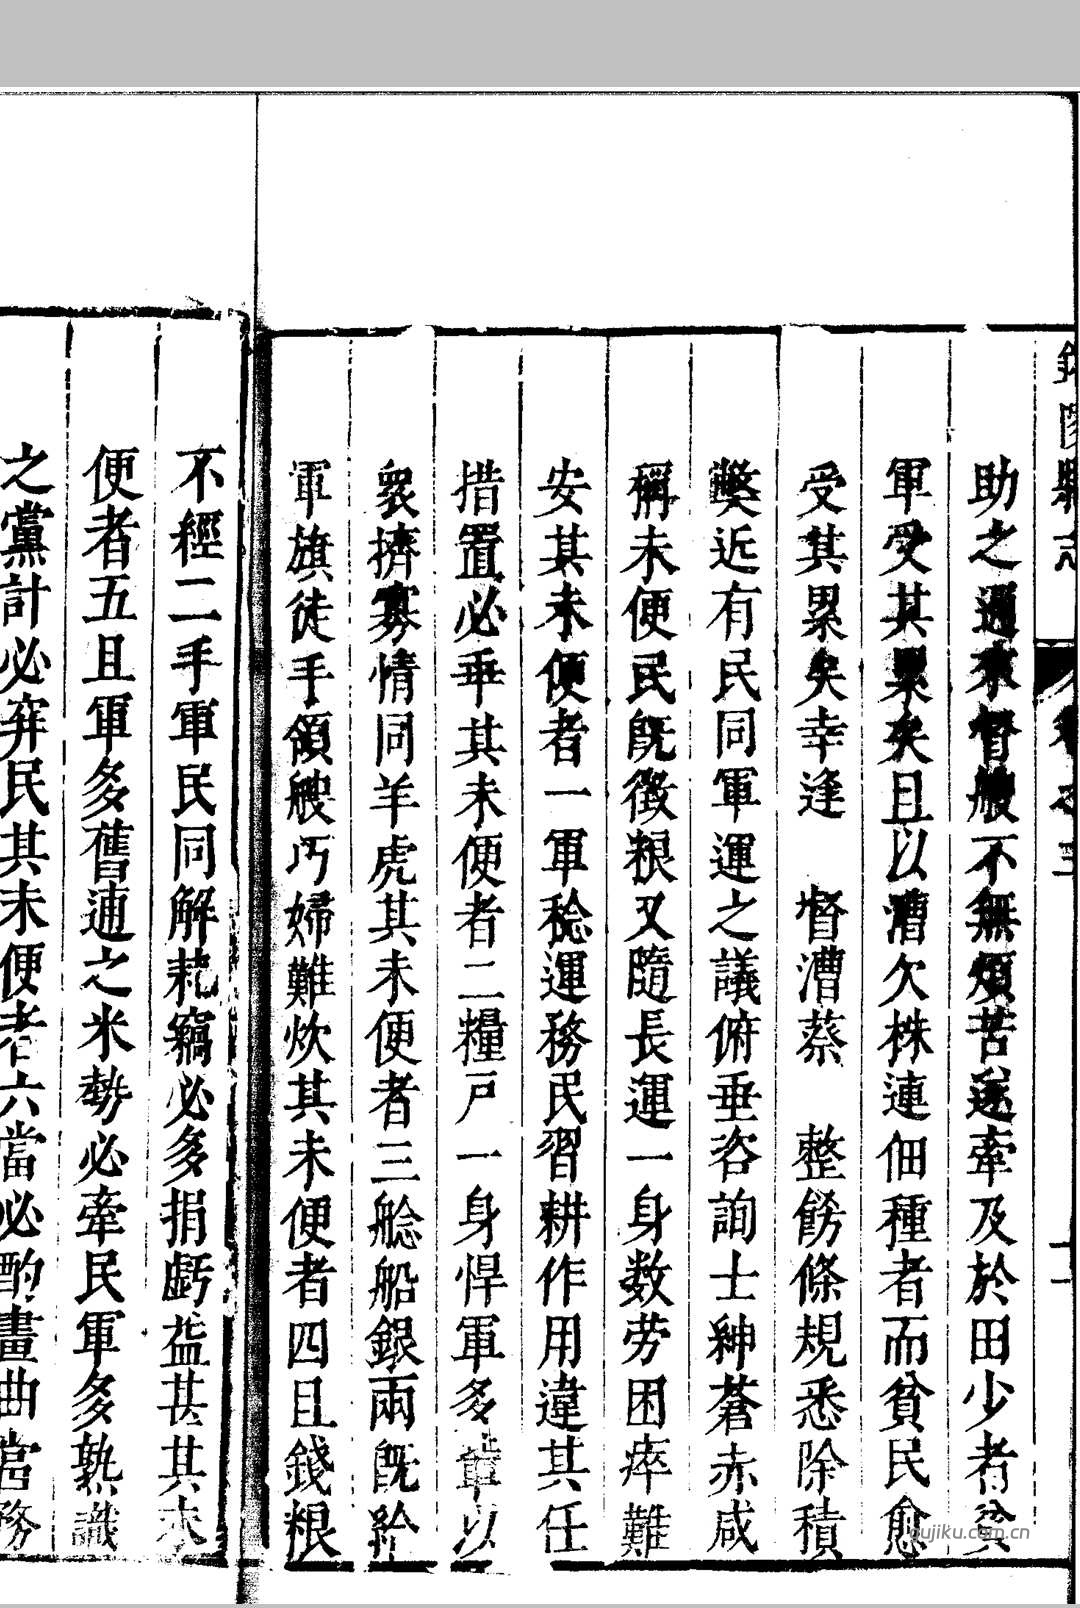 縣志
卷之三
十一
助之邇來督艘不無煩苦遂牽及於田少者貧
軍受其累矣且以漕欠株連佃種者而貧民愈
受其累矣幸逢 督漕蔡 整飭條規悉除積
獘近有民同軍運之議俯垂咨詢士紳蒼赤咸
稱未便民既徵粮又隨長運一身数劳困瘁難
安其未便者一軍稔運務民習耕作用違其任
措置必乖其未便者二糧户一身悍軍多輩以
衆擠寡情同羊虎其未便者三艌船銀兩既給
軍旗徒手領艘巧婦難炊其未便者四且錢粮
不經二手軍民同解耗竊必多捐虧益甚其未
便者五且軍多舊逋之米勢必牽民軍多熟識
之黨計必穽民其未便者六當必酌畫曲當務
gujiku.com.cn